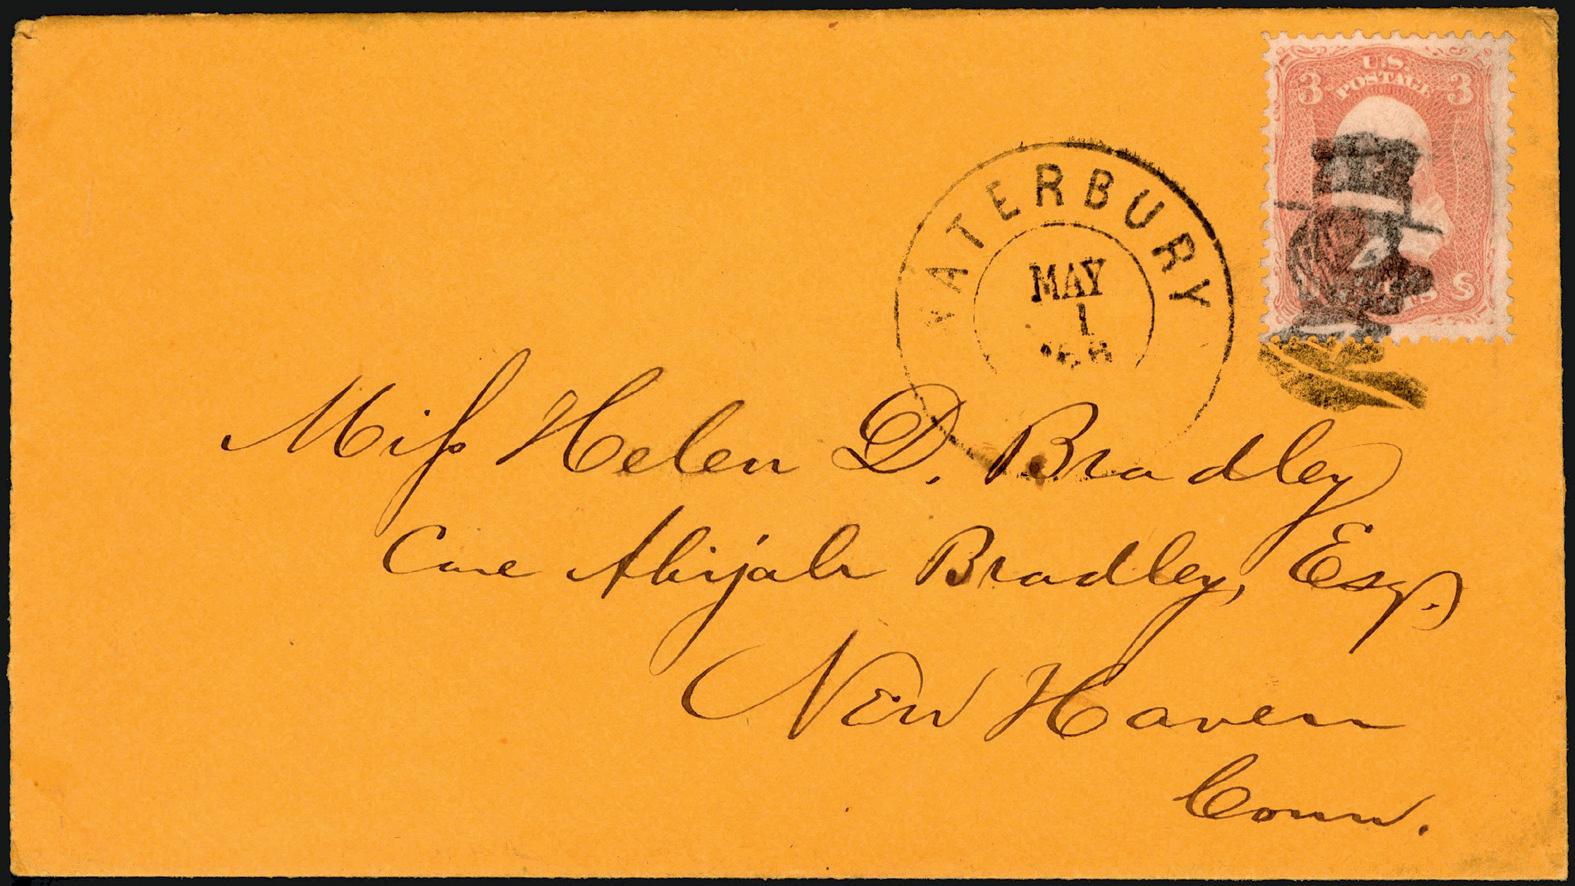 U.S.
POSTAGE
3 3
WATERBURY
MAY
1
S
Miss Helen D. Bradley
Care Abijah Bradley, Esq.
New Haven
Conn.